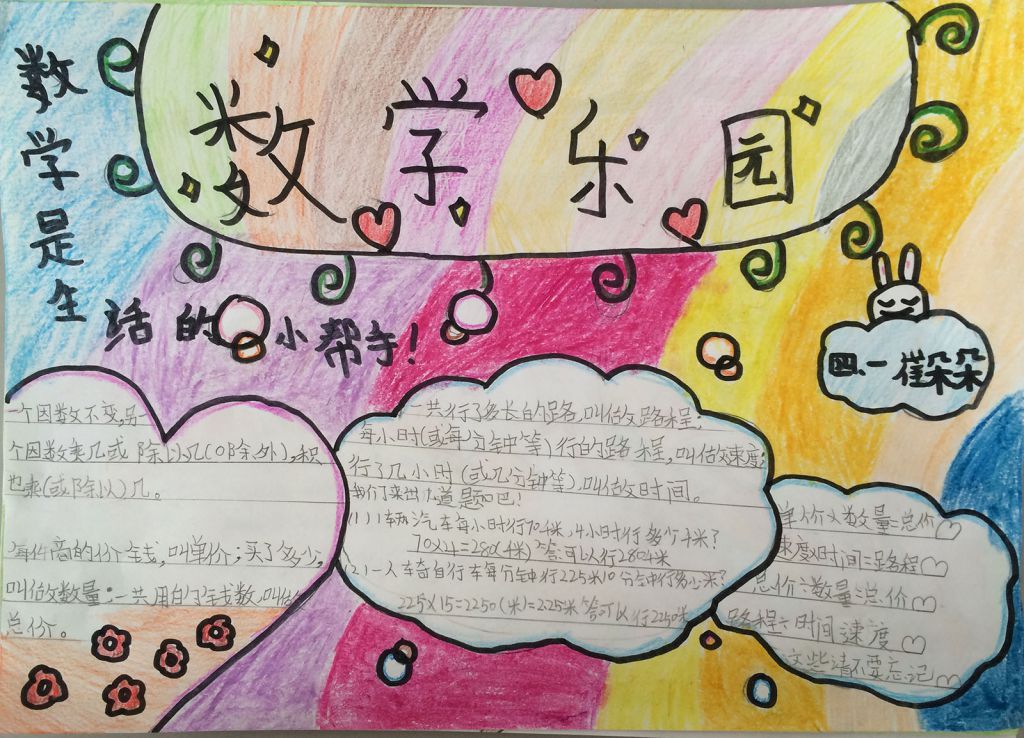 数学乐园
数学是生活的小帮手!
四、一 崔朵朵
一个因数不变,另一
个因数乘几或 除以几(0除外),积
也乘(或除以)几。
每件商的价钱,叫单价;买了多少,
叫做数量;一共用的钱数,叫做
总价。
一共行了多长的路,叫做路程;
每小时(或每分钟等)行的路程,叫做速度;
行了几小时(或几分钟等),叫做时间。
我们来出 道题吧!
(1)1辆汽车每小时行70千米,4小时行多少千米?
70×4=280(千米) 答:可以行280千米
(2)一人车奇自行车每分钟行225米10分钟行多少米?
225×15=2250(米)=225米 答可以行2250米
单价×数量=总价
速度×时间=路程
总价÷数量=总价
路程÷时间 速度
这些请不要忘记